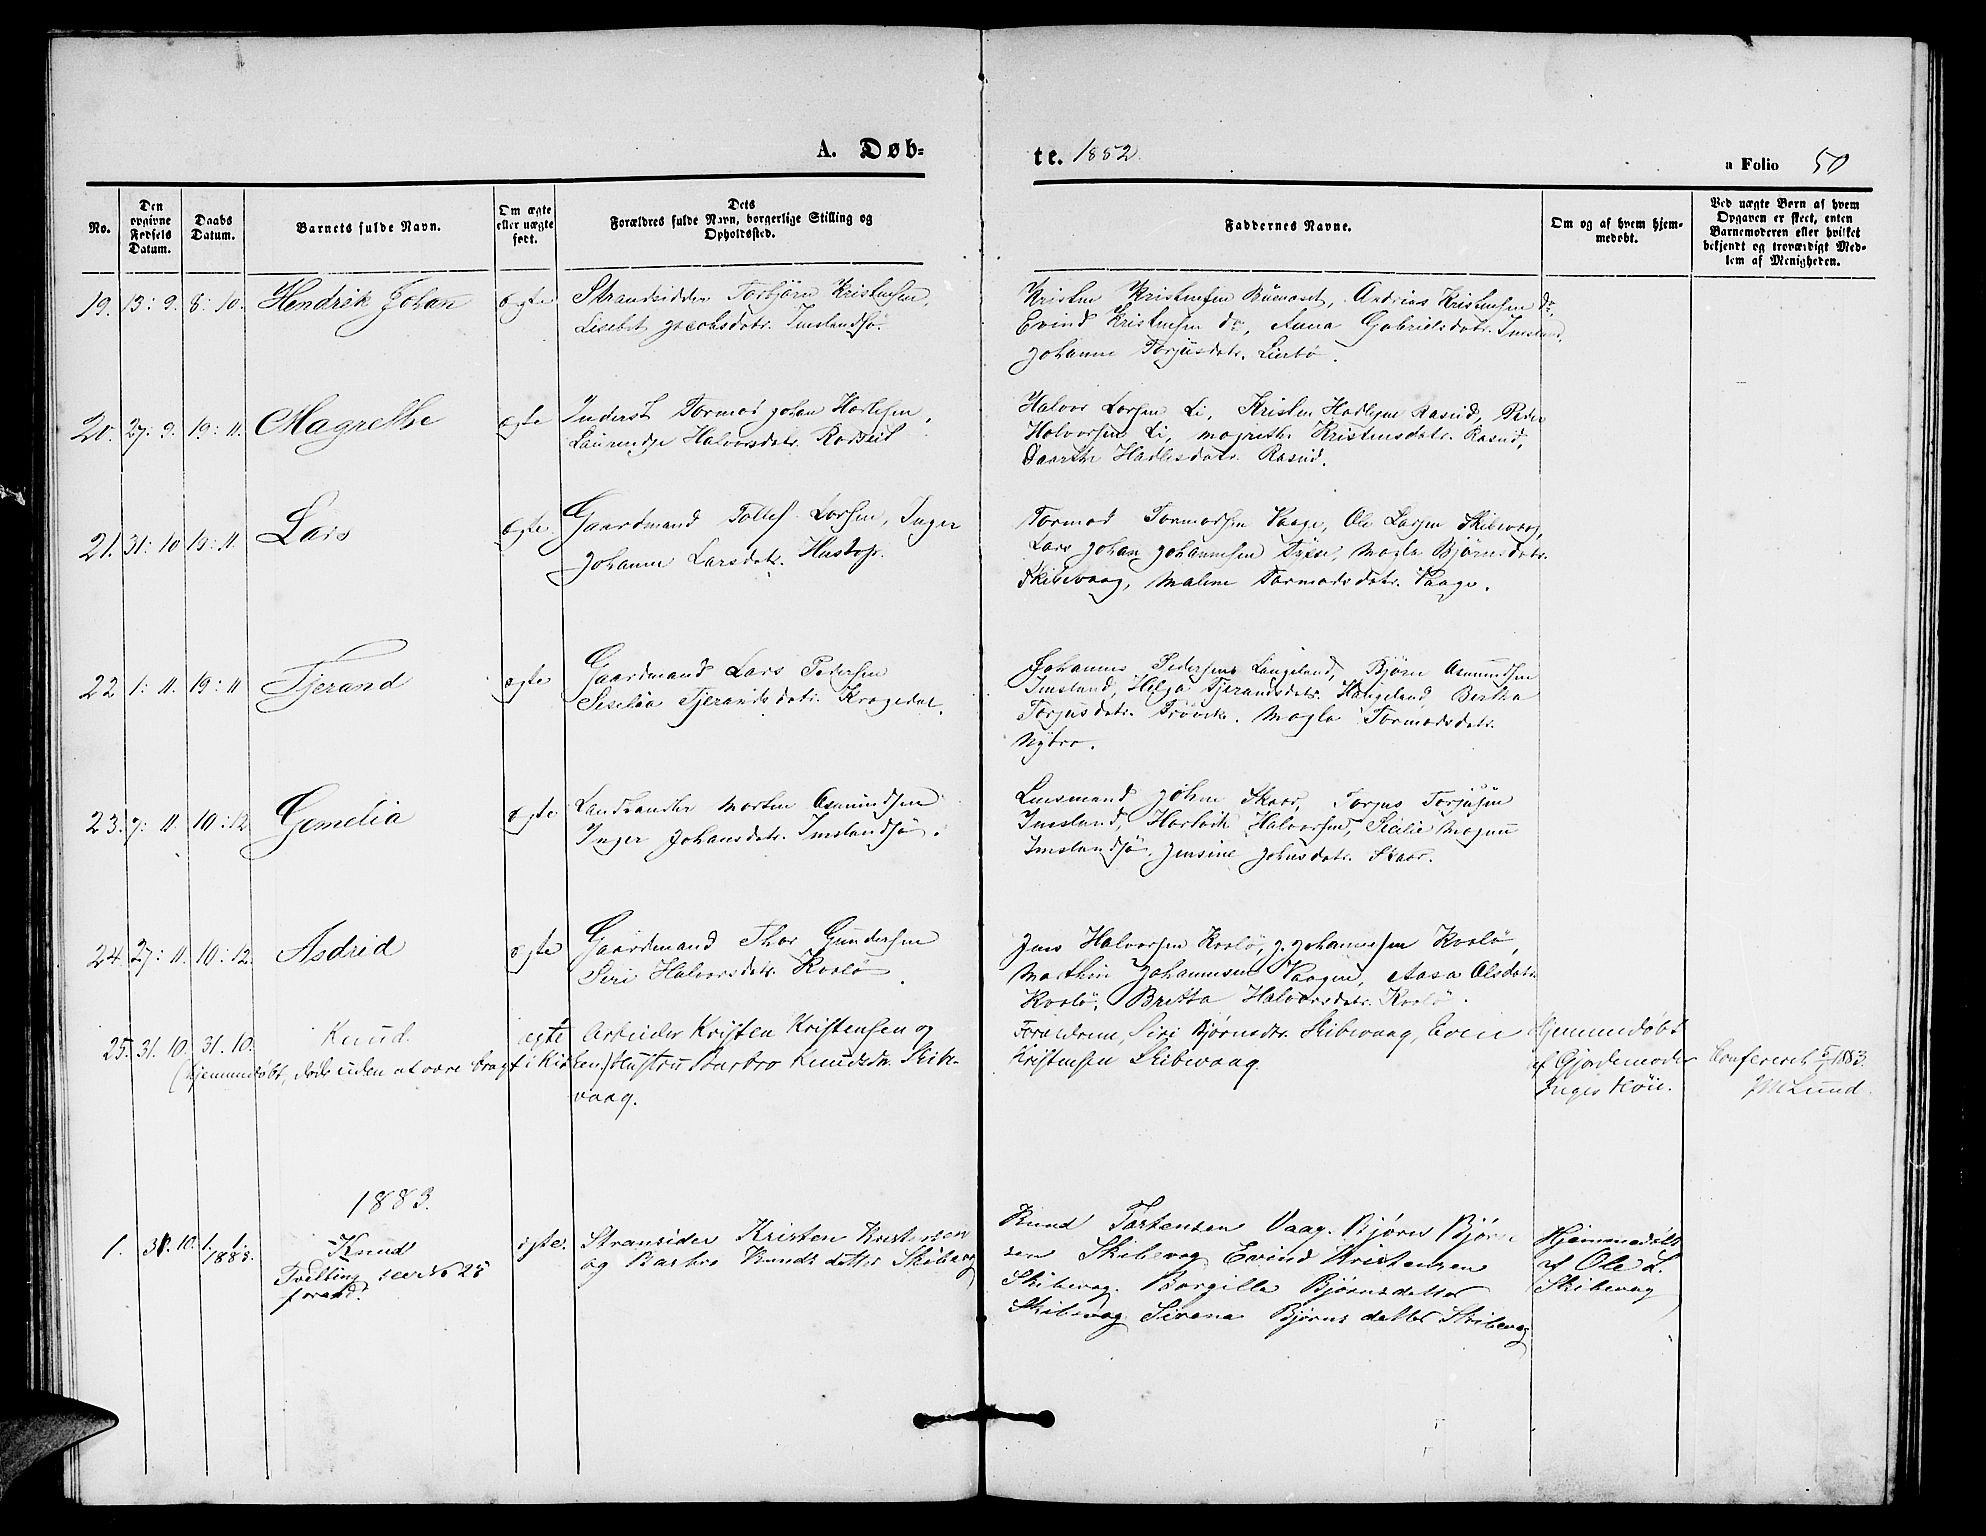 A. Døb-
te. 1882.
a Folio 50
No.
Den opgivne Fødsels Datum.
Daabs Datum.
Barnets fulde Navn.
Om ægte eller uægte født.
Dets Forældres fulde Navn, borgerlige Stilling og Opholdssted.
Faddernes Navne.
Om og af hvem hjem-
medøbt.
Ved uægte Børn af hvem
Opgaven er skeet, enten
Barnemoderen eller hvilket
bekjendt og troværdigt Med-
lem af Menigheden.
19. 13: 9. 8: 10. Hendrik Johan ægte Strandsidder Torbjörn Kristensen,
Lisebet Jacobsdatr. Imslandsjö.
Kristen Kristensen, Andreas Kristensen do,
Evind Kristensen do, Anna Gabrielsdatr. Imsland,
Johanne Torjusdatr.
20. 27: 9. 19: 11. Magrethe ægte Inderst Tormod Johan
Halvorsdatr.
Halvor Larsen Li, Kristen Rasud, Peder
Halvorsen Li, Magrethe Kristensdatr. Rasud,
Hadlesdatr. Rasud.
21. 31: 10 19: 11. Lars ægte Gaardmand Tollef Larsen, Inger
Johanne Larsdatr.
Tormod Tormodsen Vaage, Ole Larsen Skibevaag,
Lars Johan Johannesen, Magla Bjørnsdatr.
Skibevaag, Maline Tormodsdatr. Vaage.
22 1: 11. 19: 11 Tjerand ægte Gaardmand Lars Pedersen
Tjerandsdatr. Krogedal.
Johannes Pedersen Langeland, Bjørn Asmundsen
Imsland, Helga Tjerandsdatr. Haugeland, Bertha
Torjusdatr. Magla Tormodsdatr.
Nybro.
23. 7: 11. 10: 12 Gemelia ægte Landhandler Morten Asmundsen
Inger Johansdatr. Imslandsjö.
Lensmand John Skaar, Torjus Torjusen
Imsland, Halvorsen, Sicilie
Imslandsjö. Jensine Johnsdatr. Skaar.
24. 27: 11. 10: 12. Asdrid ægte Gaardmand Thor Gundersen
Siri Halvorsdatr. Kvolö.
Jens Halvorsen Kvolö, J. Johannessen Kvolö,
Marthin Johannesen Vaagen, Aasa Olsdatr.
Kvolö, Bretta Halvorsdatr. Kvolö.
25. 31. 10. 31. 10. Knud. ægte Arbeider Kristen Kristensen og
(hjemmedøbt, døde uden at være bragt i Kirken) Hustru Barbro Knudsdtr. Skib-
vaag.
Forældrene, Siri Bjørnsdtr. Skibevaag, Even
Kristensen Skibevaag.
Hjemmedøbt
af Gjordemoder
Conferered 1883.
M Lund.
1883.
1. 31. 10. 1. 1. 1883. Knud ægte. Stransider Kristen Kristensen
Tvilling, see No 25
foran.
og Barbro Knudsdatter Skibevag
Knud Tortensen Vaag. Bjørn Bjørn
sen Skibevag Evind Kristensen
Skibevag. Borgilla Bjørnsdatter
Skibevag Sirena Bjørns datter Skibevag
Hjemmedøbt
af Ole L.
Skibevag